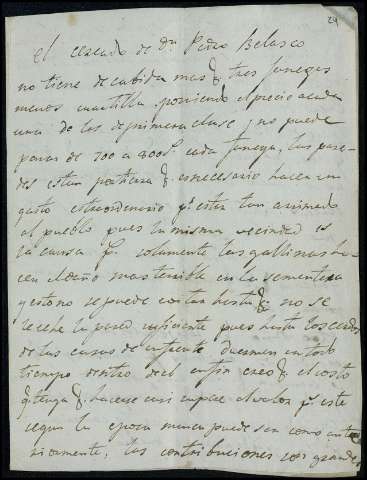 24
El cercado de Dn Pedro Belasco
no tiene de cabida mas q tres fanegas
menos cuartilla poniendo el precio a cada
una de los de primera clase, no puede
pasar de 700 a 800 s. cada fanega, las pare-
des estan q es necesario hacer un
gasto estraordinario pr estar tan arrimado
al pueblo pues la misma vecindad es
la causa pr solamente las gallinas ha-
cen el daño mas terrible en la sementera
y esto no se puede cortar hasta q no se
le eche la pared suficiente pues hasta los cerdos
de las casas de enfrente duermen en todo
tiempo dentro de el en fin creo q el costo
q tenga q hacerse casi el valor pr este
segun la epoca nunca puede ser como ante-
riormente, las contribuciones son grandes